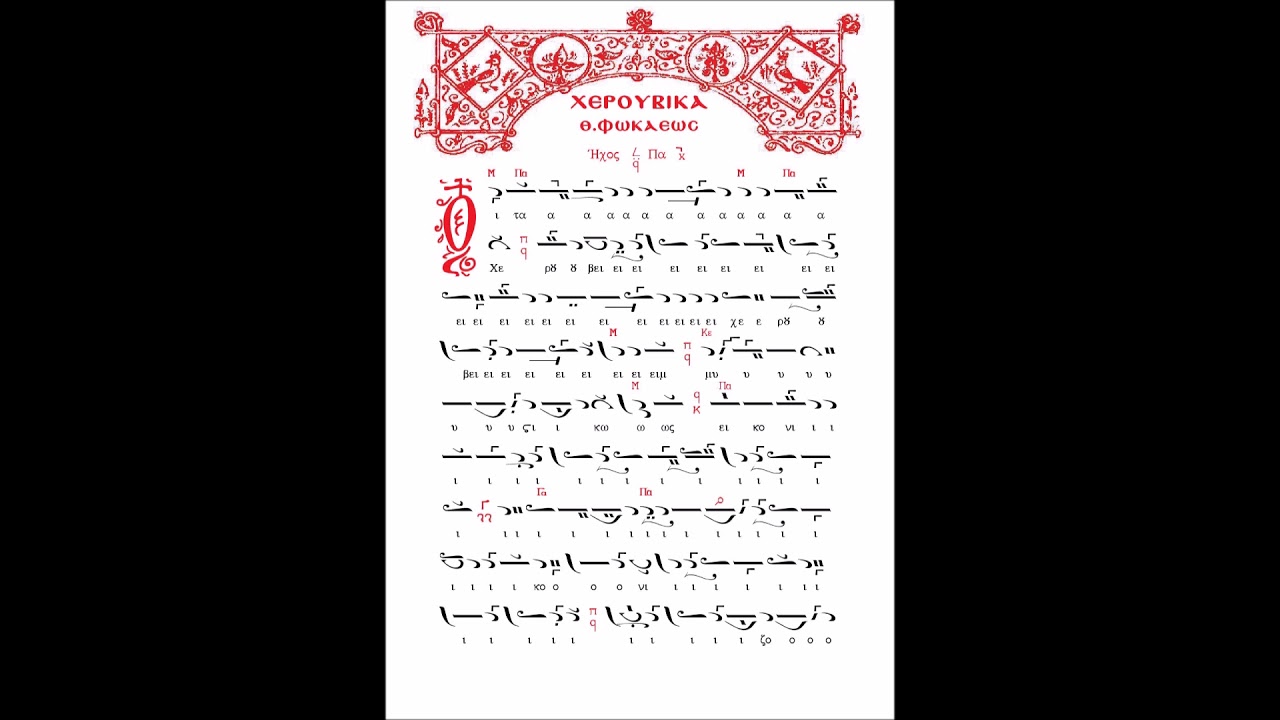 ΧΕΡΟΥΒΙΚΑ
Θ.ΦΩΚΑΕΩΣ
Ἦχος Πα
Μ Πα Μ Πα
Οι τα α α α α α α α α α α α α
Χε ρȣ ȣ βει ει ει ει ει ει ει ει ει
ει ει ει ει ει ει ει ει ει ει ει ει χε ε ρȣ ȣ
Μ Κε
βει ει ει ει ει ει ει ει ειμ μυ υ υ υ υ υ
Μ Πα
υ υ υ ϛι ι κω ω ως ει κο νι ι ι
ι ι ι ι ι ι ι ι ι ι ι ι ι
Γα Πα
ι ι ι ι ι ι ι ι ι ι ι ι ι ι
ι ι ι ι κο ο ο ο νι ι ι ι ι ι ι ι
ι ι ι ι ι ι ι ι ι ι ζο ο ο ο